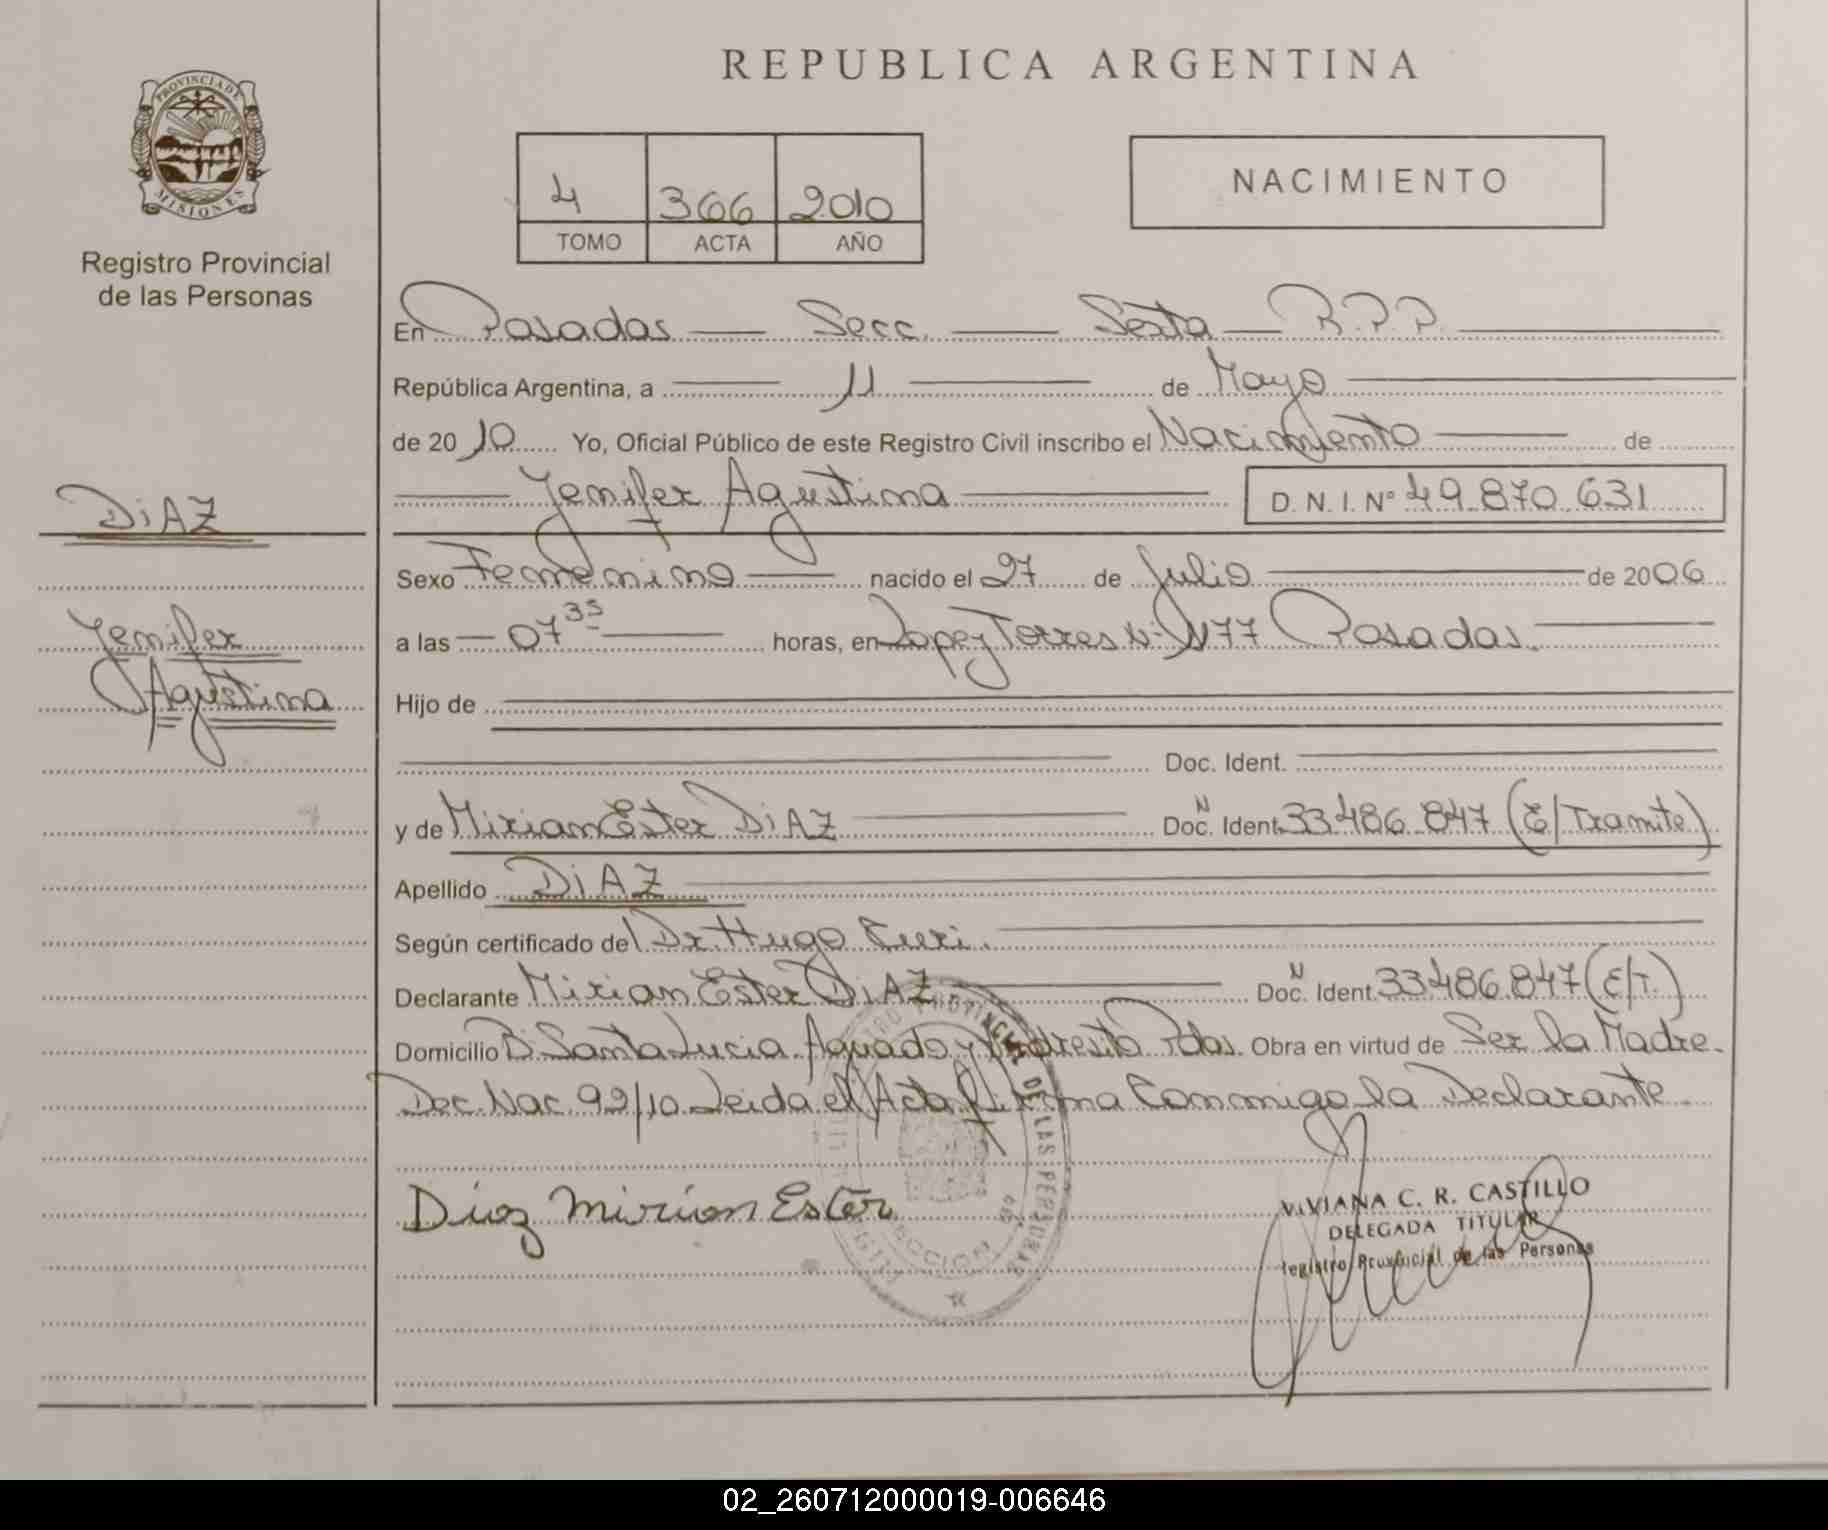 REPUBLICA ARGENTINA
PROVINCIA DE
MISIONES
Registro Provincial
de las Personas
4 366 2010
TOMO ACTA AÑO
NACIMIENTO
En Posadas Secc. Sexta R.P.P.
República Argentina, a 11 de Mayo
de 2010 Yo, Oficial Público de este Registro Civil inscribo el Nacimiento de
Jenifer Agustina D.N.I. Nº 49.870.631
DiAZ
Jenifer
Agustina
Sexo Femenino nacido el 27 de Julio de 2006
a las 07 35 horas, en Lopez Torres Nº 1177 Posadas.
Hijo de
Doc. Ident.
y de Mirian Ester DiAZ Doc. Ident. N 33.486.847 (E/Tramite)
Apellido DiAZ
Según certificado del Dr Hugo Curi.
Declarante Mirian Ester DiAZ Doc. Ident. N 33.486.847 (E/T.)
Domicilio Bº Santa Lucia Aguado y Andresito Pdas. Obra en virtud de Ser la Madre.
Dec. Nac. 92/10. Leida el Acta Firma Conmigo la Declarante.
Diaz Mirian Ester
VIVIANA C. R. CASTILLO
DELEGADA TITULAR
Registro Provincial de las Personas
02_260712000019-006646